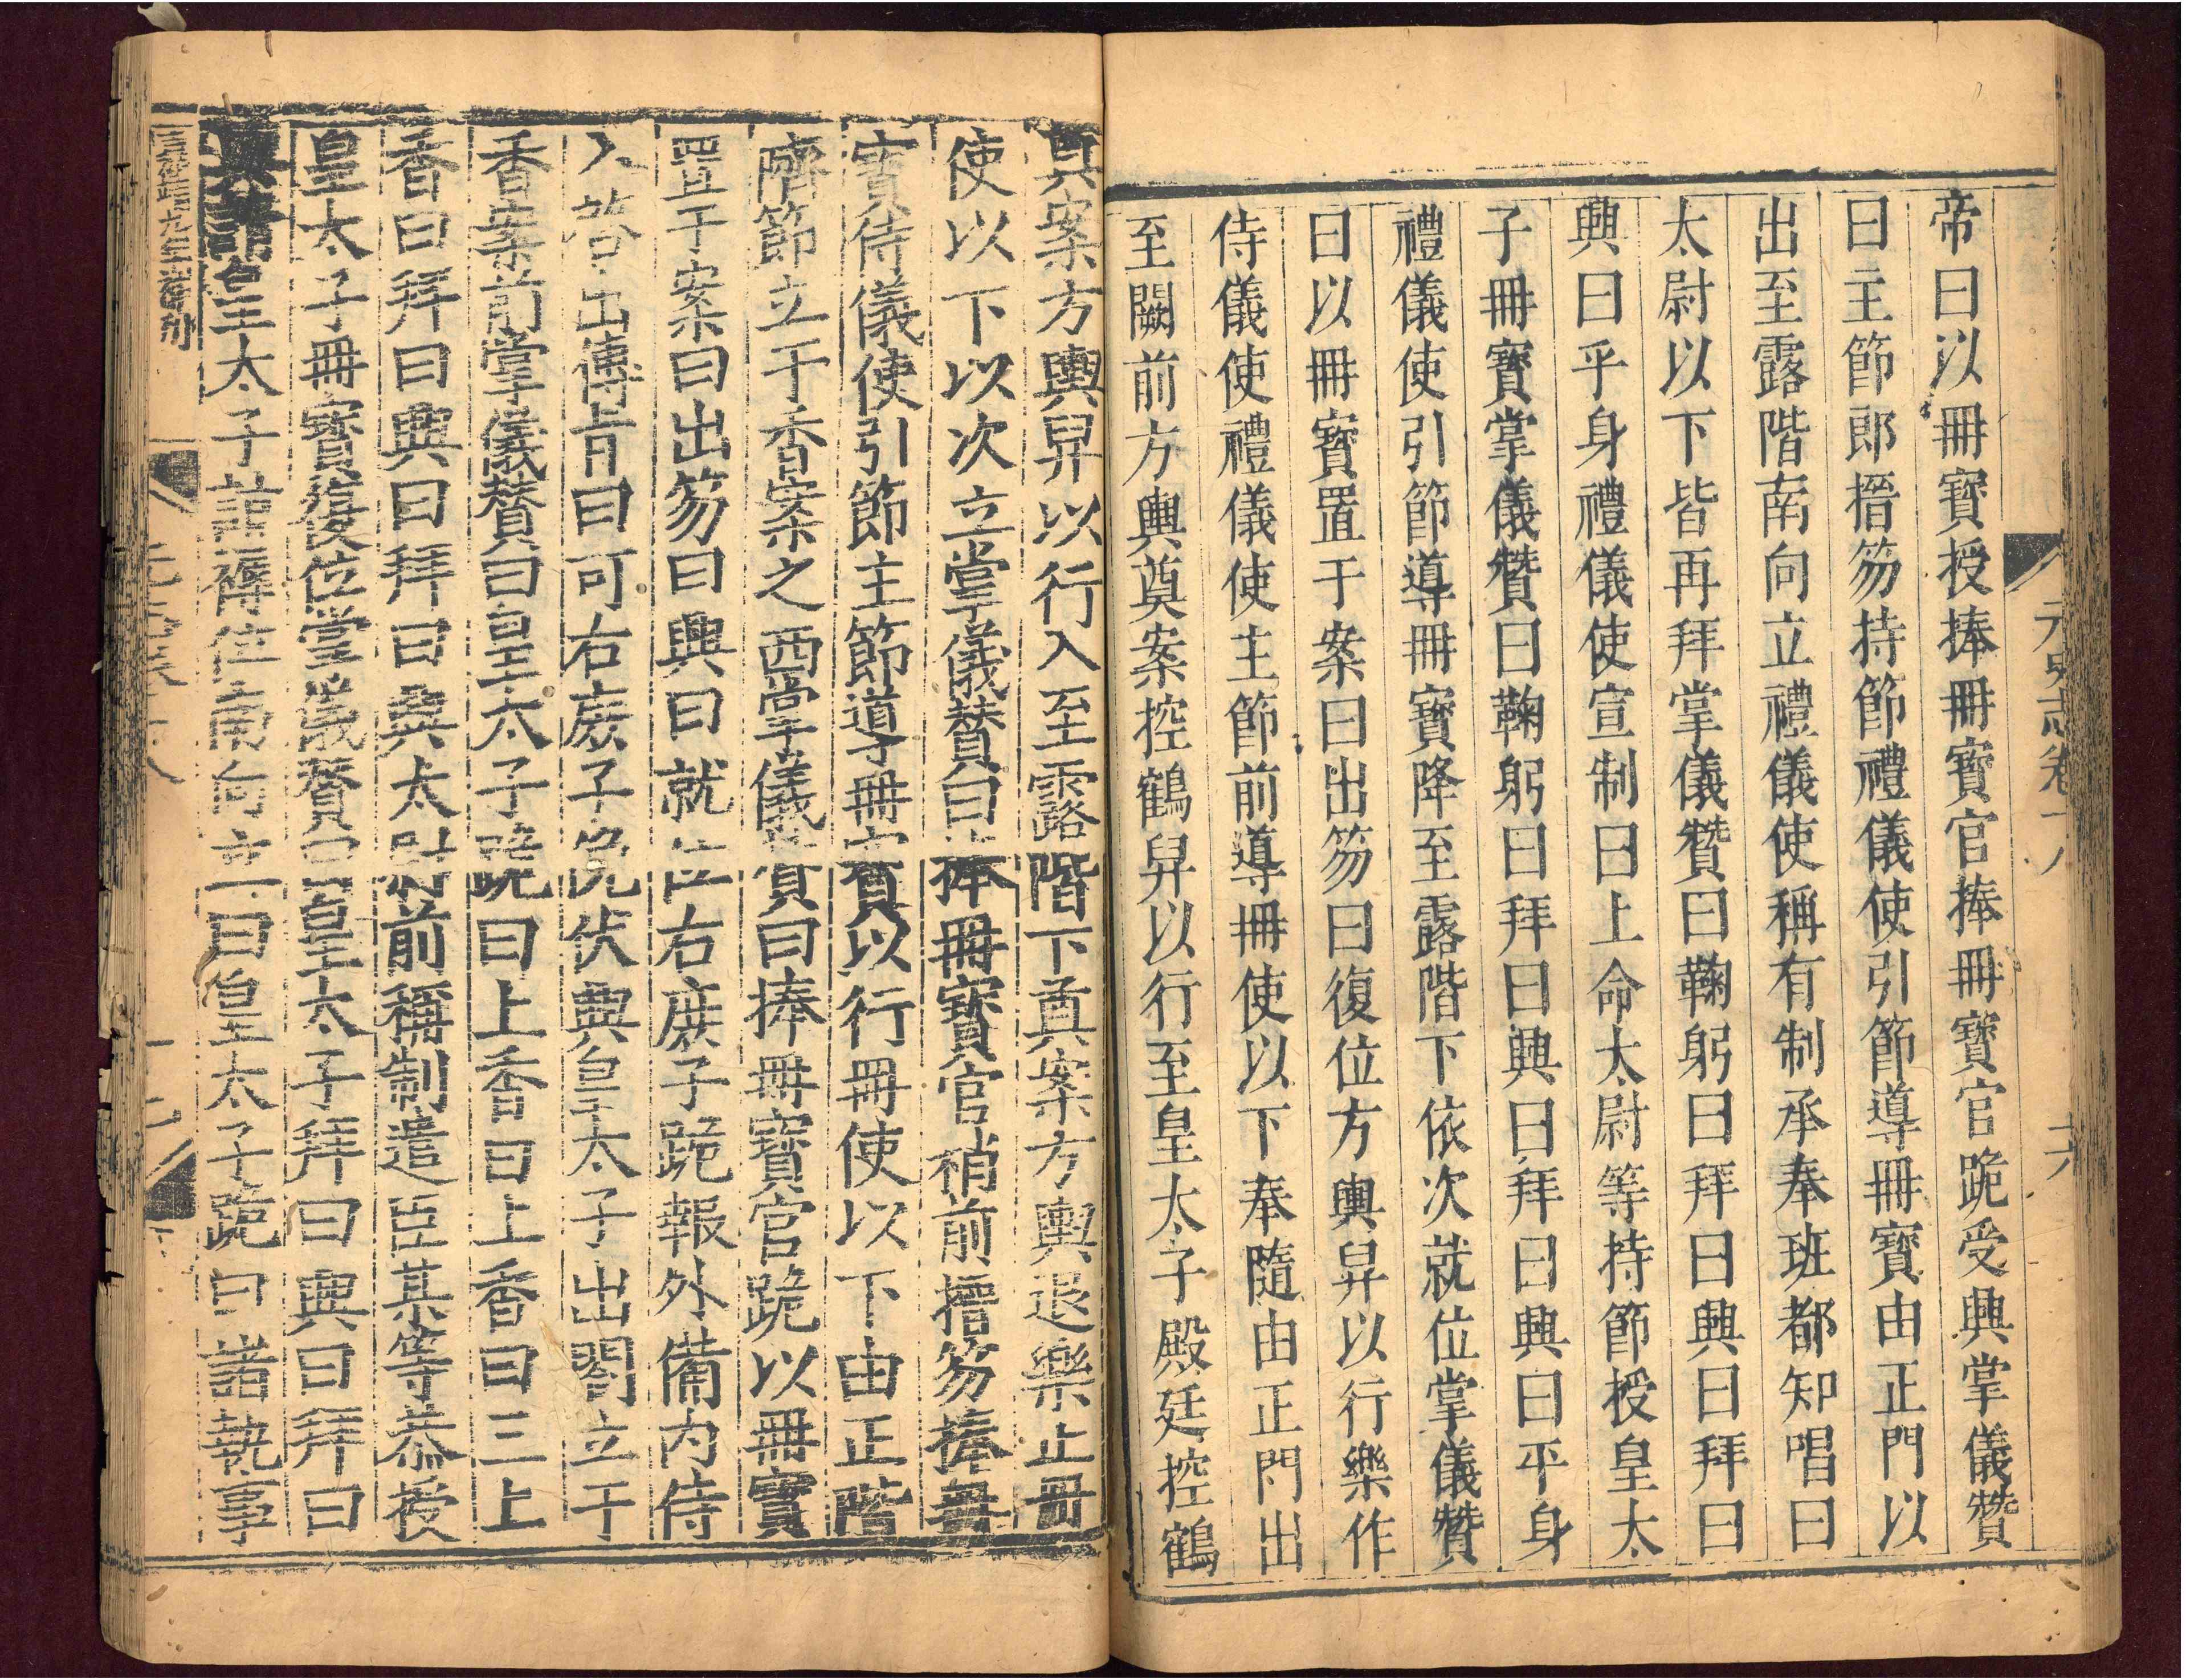 元史志卷十八
十六
帝曰以冊寶授捧冊寶官捧冊寶官跪受興掌儀贊
曰主節郎搢笏持節禮儀使引節導冊寶由正門以
出至露階南向立禮儀使稱有制承奉班都知唱曰
太尉以下皆再拜掌儀贊曰鞠躬曰拜曰興曰拜曰
興曰平身禮儀使宣制曰上命太尉等持節授皇太
子冊寶掌儀贊曰鞠躬曰拜曰興曰拜曰興曰平身
禮儀使引節導冊寶降至露階下依次就位掌儀贊
曰以冊寶置于案曰出笏曰復位方輿舁以行樂作
侍儀使禮儀使主節前導冊使以下奉隨由正門出
至闕前方輿奠案控鶴舁以行至皇太子殿廷控鶴
奠案方輿舁以行入至露階下奠案方輿退樂止冊
使以下以次立掌儀贊曰捧冊寶官稍前搢笏捧冊
寶侍儀使引節主節導冊寶以行冊使以下由正階
隮節立于香案之西掌儀贊曰捧冊寶官跪以冊寶
置于案曰出笏曰興曰就位右庶子跪報外備內侍
入啓出傳旨曰可右庶子俛伏興皇太子出閣立于
香案前掌儀贊曰皇太子跪曰上香曰上香曰三上
香曰拜曰興曰拜曰興太尉前稱制遣臣某等恭授
皇太子冊寶復位掌儀贊曰皇太子拜曰興曰拜曰
興請皇太子詣褥位南向立曰皇太子跪曰諸執事